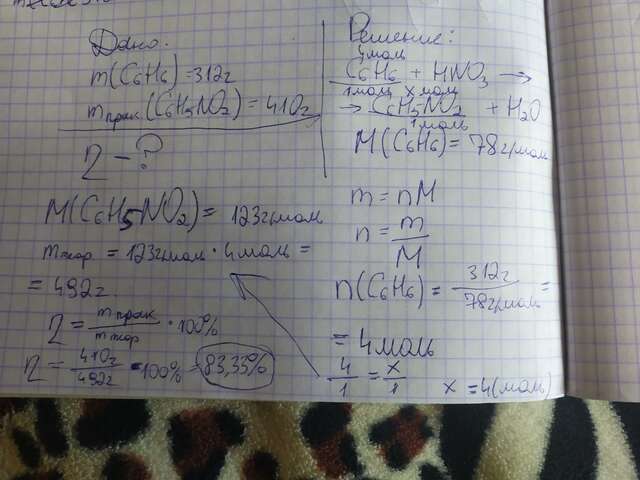 Дано:
m(C6H6) = 312г
mпрак.(C6H5NO2) = 410г
η - ?
Решение:
4моль
C6H6 + HNO3 →
1моль x моль
→ C6H5NO2 + H2O
1моль
M(C6H6) = 78г/моль
m = nM
n = m/M
n(C6H6) = 312г/78г/моль =
= 4моль
4/1 = x/1 x = 4(моль)
M(C6H5NO2) = 123г/моль
mтеор = 123г/моль · 4моль =
= 492г.
η = mпрак/mтеор · 100%
η = 410г/492г · 100% = 83,33%